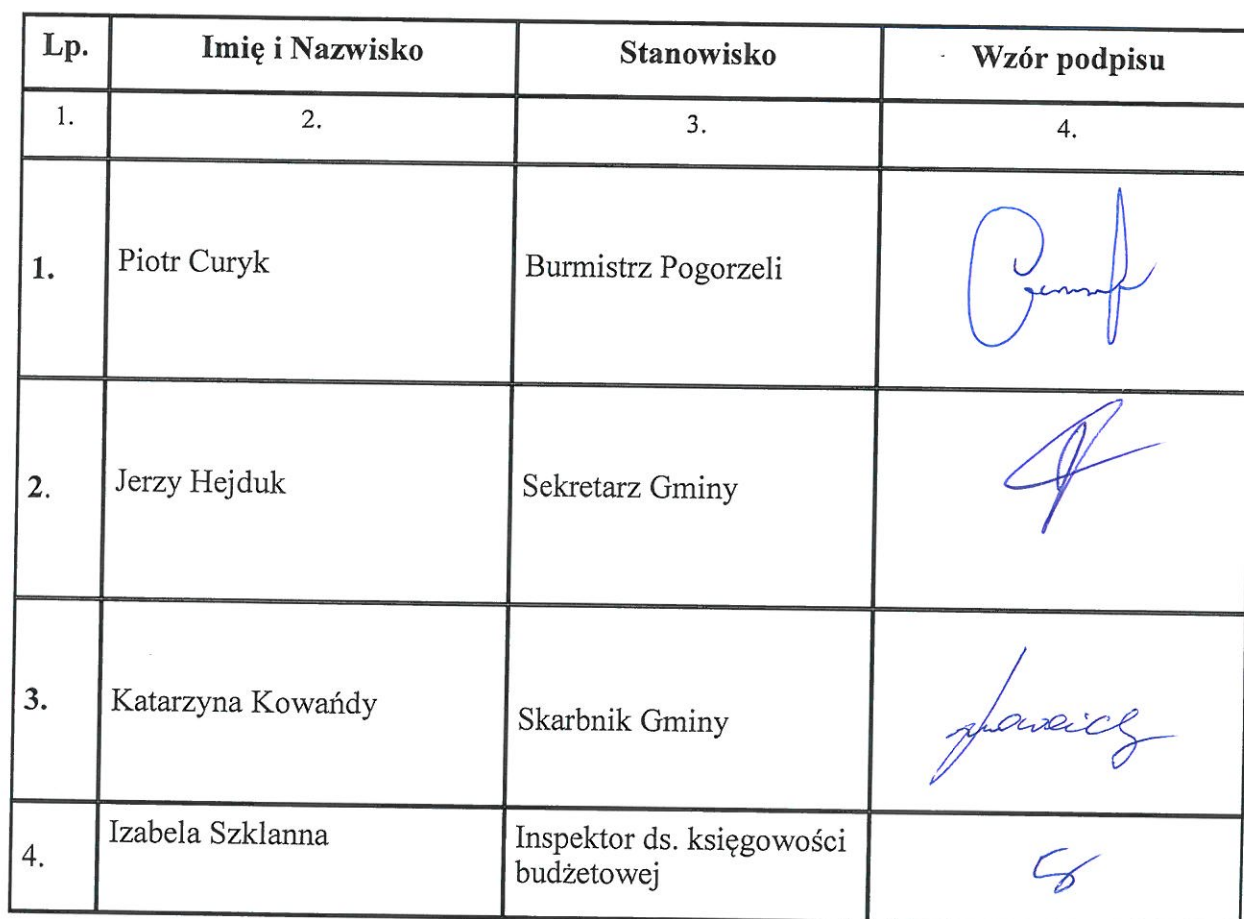 Lp. Imię i Nazwisko Stanowisko Wzór podpisu
1. 2. 3. 4.
1. Piotr Curyk Burmistrz Pogorzeli
2. Jerzy Hejduk Sekretarz Gminy
3. Katarzyna Kowańdy Skarbnik Gminy
4. Izabela Szklanna Inspektor ds. księgowości
budżetowej